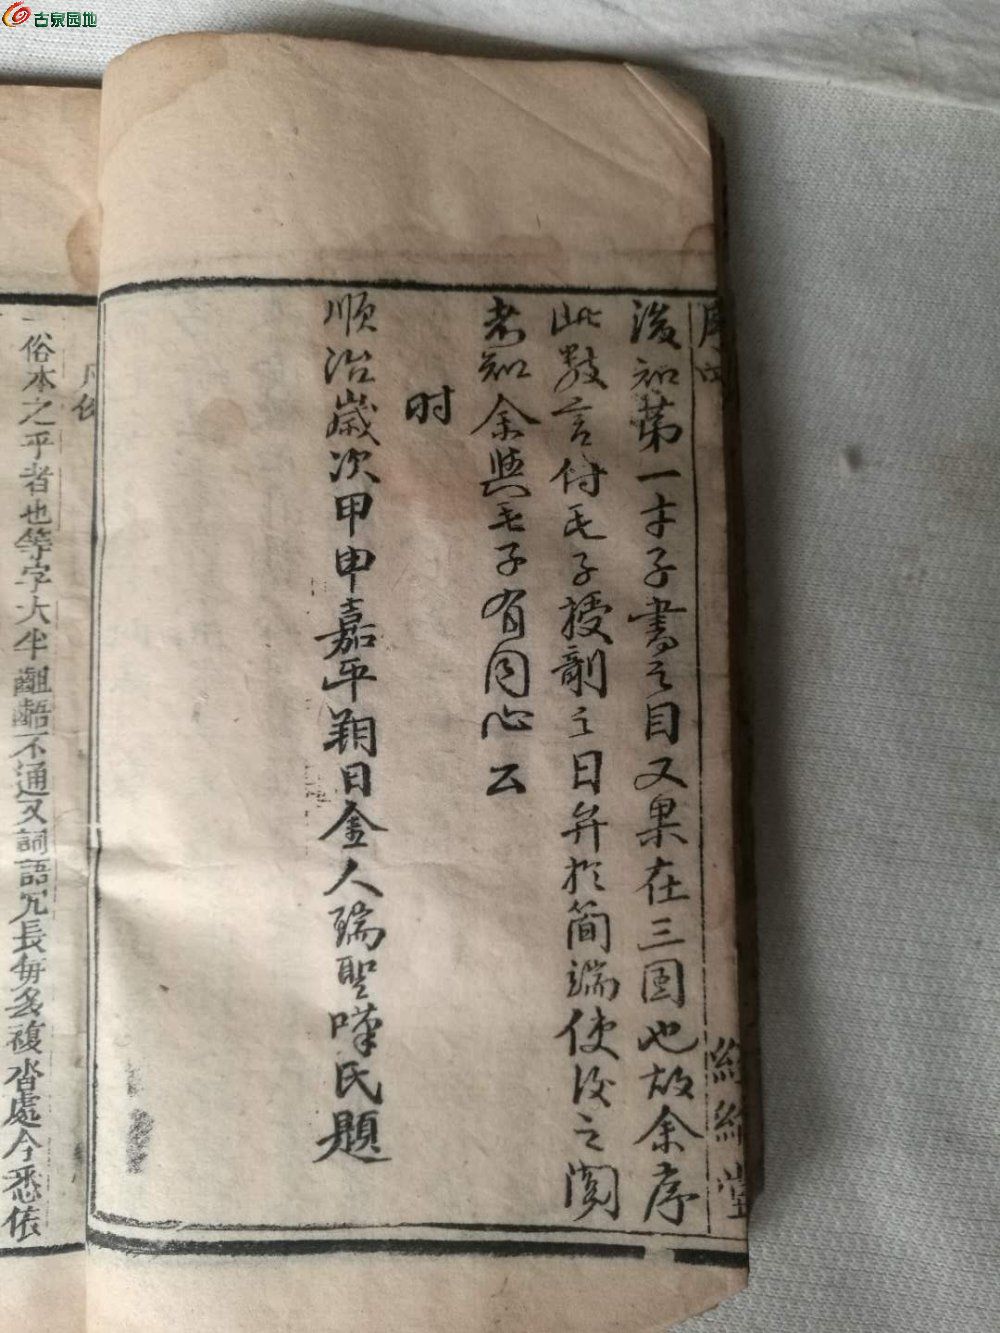 古泉园地
後知第一才子書之目又果在三国也故余序
此數言付毛子授剞之日弁於簡端使後之閲
者知余與毛子有同心云
时
順治歲次甲申嘉平朔日金人瑞聖嘆氏題
一俗本之乎者也等字大半齟齬不通又詞語冗長每多複沓處今悉依